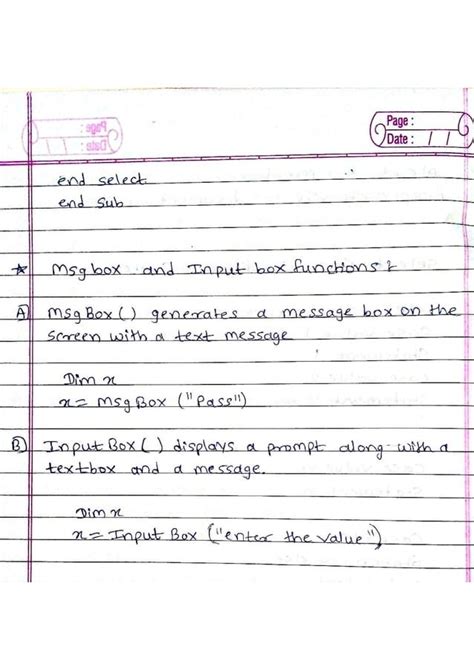 Page :
Date : / /
end select
end sub
* Msgbox and Input box functions :
A) MsgBox() generates a message box on the
screen with a text message
Dim x
x = MsgBox ("Pass")
B) InputBox() displays a prompt along with a
textbox and a message.
Dim x
x = Input Box ("enter the value")